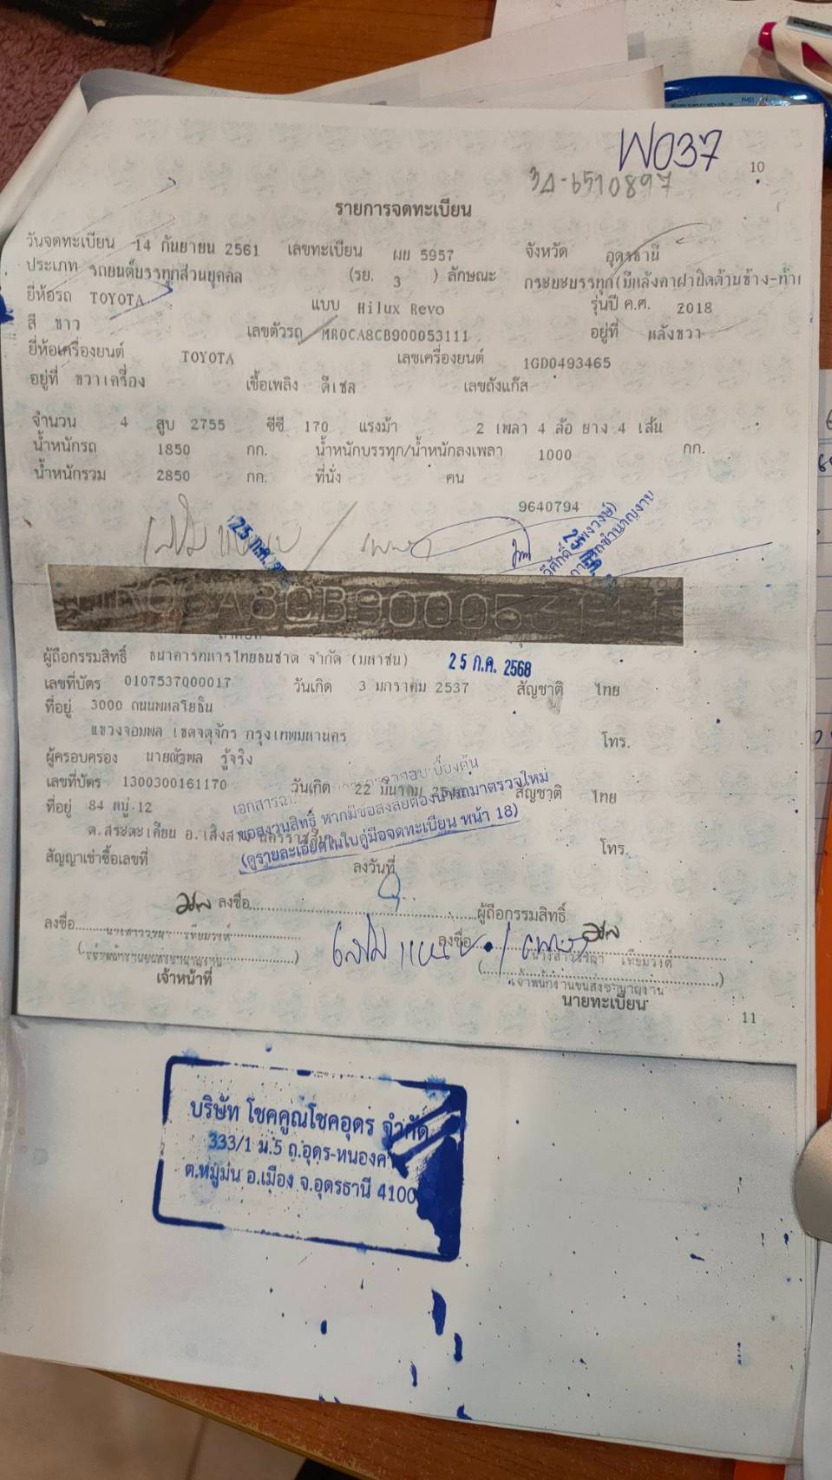 W037
34-6510897
10
รายการจดทะเบียน
วันจดทะเบียน 14 กันยายน 2561 เลขทะเบียน ผย 5957 จังหวัด อุดรธานี
ประเภท รถยนต์บรรทุกส่วนบุคคล (รย. 3 ) ลักษณะ กระบะบรรทุก(มีหลังคาฝาปิดด้านข้าง-ท้าย
ยี่ห้อรถ TOYOTA แบบ Hilux Revo รุ่นปี ค.ศ. 2018
สี ขาว เลขตัวรถ MR0CA8CB900053111 อยู่ที่ หลังขวา
ยี่ห้อเครื่องยนต์ TOYOTA เลขเครื่องยนต์ 1GD0493465
อยู่ที่ ขวาเครื่อง เชื้อเพลิง ดีเซล เลขถังแก๊ส
จำนวน 4 สูบ 2755 ซีซี 170 แรงม้า 2 เพลา 4 ล้อ ยาง 4 เส้น
น้ำหนักรถ 1850 กก. น้ำหนักบรรทุก/น้ำหนักลงเพลา 1000 กก.
น้ำหนักรวม 2850 กก. ที่นั่ง คน
9640794
25 ก.ค.
25 ก.ค.
MR0CA8CB900053111
ผู้ถือกรรมสิทธิ์ ธนาคารทหารไทยธนชาต จำกัด (มหาชน) 25 ก.ค. 2568
เลขที่บัตร 0107537000017 วันเกิด 3 มกราคม 2537 สัญชาติ ไทย
ที่อยู่ 3000 ถนนพหลโยธิน
แขวงจอมพล เขตจตุจักร กรุงเทพมหานคร โทร.
ผู้ครอบครอง นายณัฐพล รู้จริง
เลขที่บัตร 1300300161170 วันเกิด 22 มีนาคม สัญชาติ ไทย
ที่อยู่ 84 หมู่ 12
ต.สระตะเคียน อ.เสิงสาง
ขอสงวนสิทธิ์ หากมีข้อสงสัยต้องนำรถมาตรวจใหม่
(ดูรายละเอียดในใบคู่มือจดทะเบียน หน้า 18)
โทร.
สัญญาเช่าซื้อเลขที่ ลงวันที่
ลงชื่อ ผู้ถือกรรมสิทธิ์
ลงชื่อ ลงชื่อ
เจ้าหน้าที่ นายทะเบียน
11
บริษัท โชคคูณโชคอุดร จำกัด
333/1 ม.5 ถ.อุดร-หนองค
ต.หมูม่น อ.เมือง จ.อุดรธานี 4100